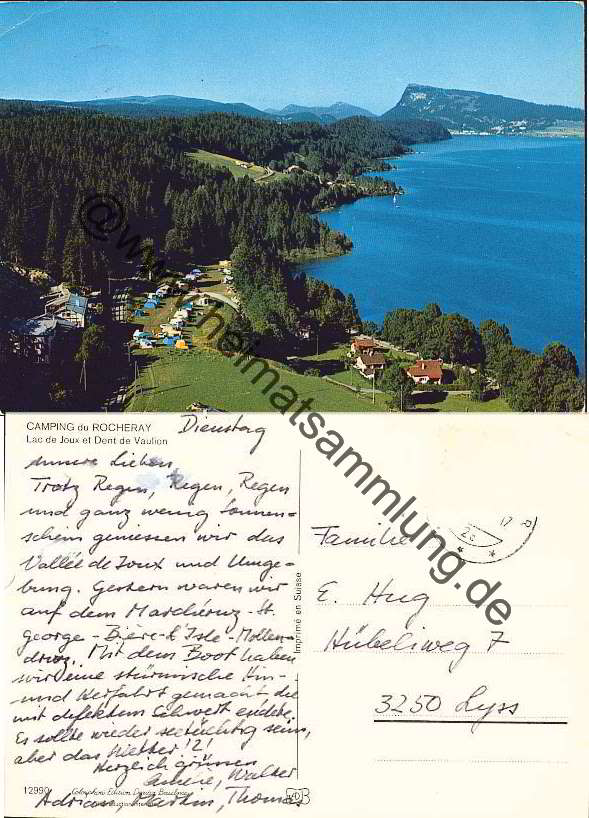 @www.heimatsammlung.de
CAMPING du ROCHERAY
Lac de Joux et Dent de Vaulion
Dienstag
unsere Lieben,
Trotz Regen, Regen, Regen
und ganz wenig Sonnen-
schein geniessen wir das
Vallée de Joux und Umge-
bung. Gestern waren wir
auf dem Marchéruz - St.
George - Bière - L'Isle - Mollen-
druz. Mit dem Boot haben
wir eine stürmische Hin-
und Herfahrt gemacht, die
mit defektem Schwert endete.
Es sollte wieder seetüchtig sein,
aber das Wetter!?!
Herzlich grüssen
Walter
Adrian, Martin, Thomas
12990
Imprimé en Suisse
Familie
E. Hug
Hübeliweg 7
3250 Lyss